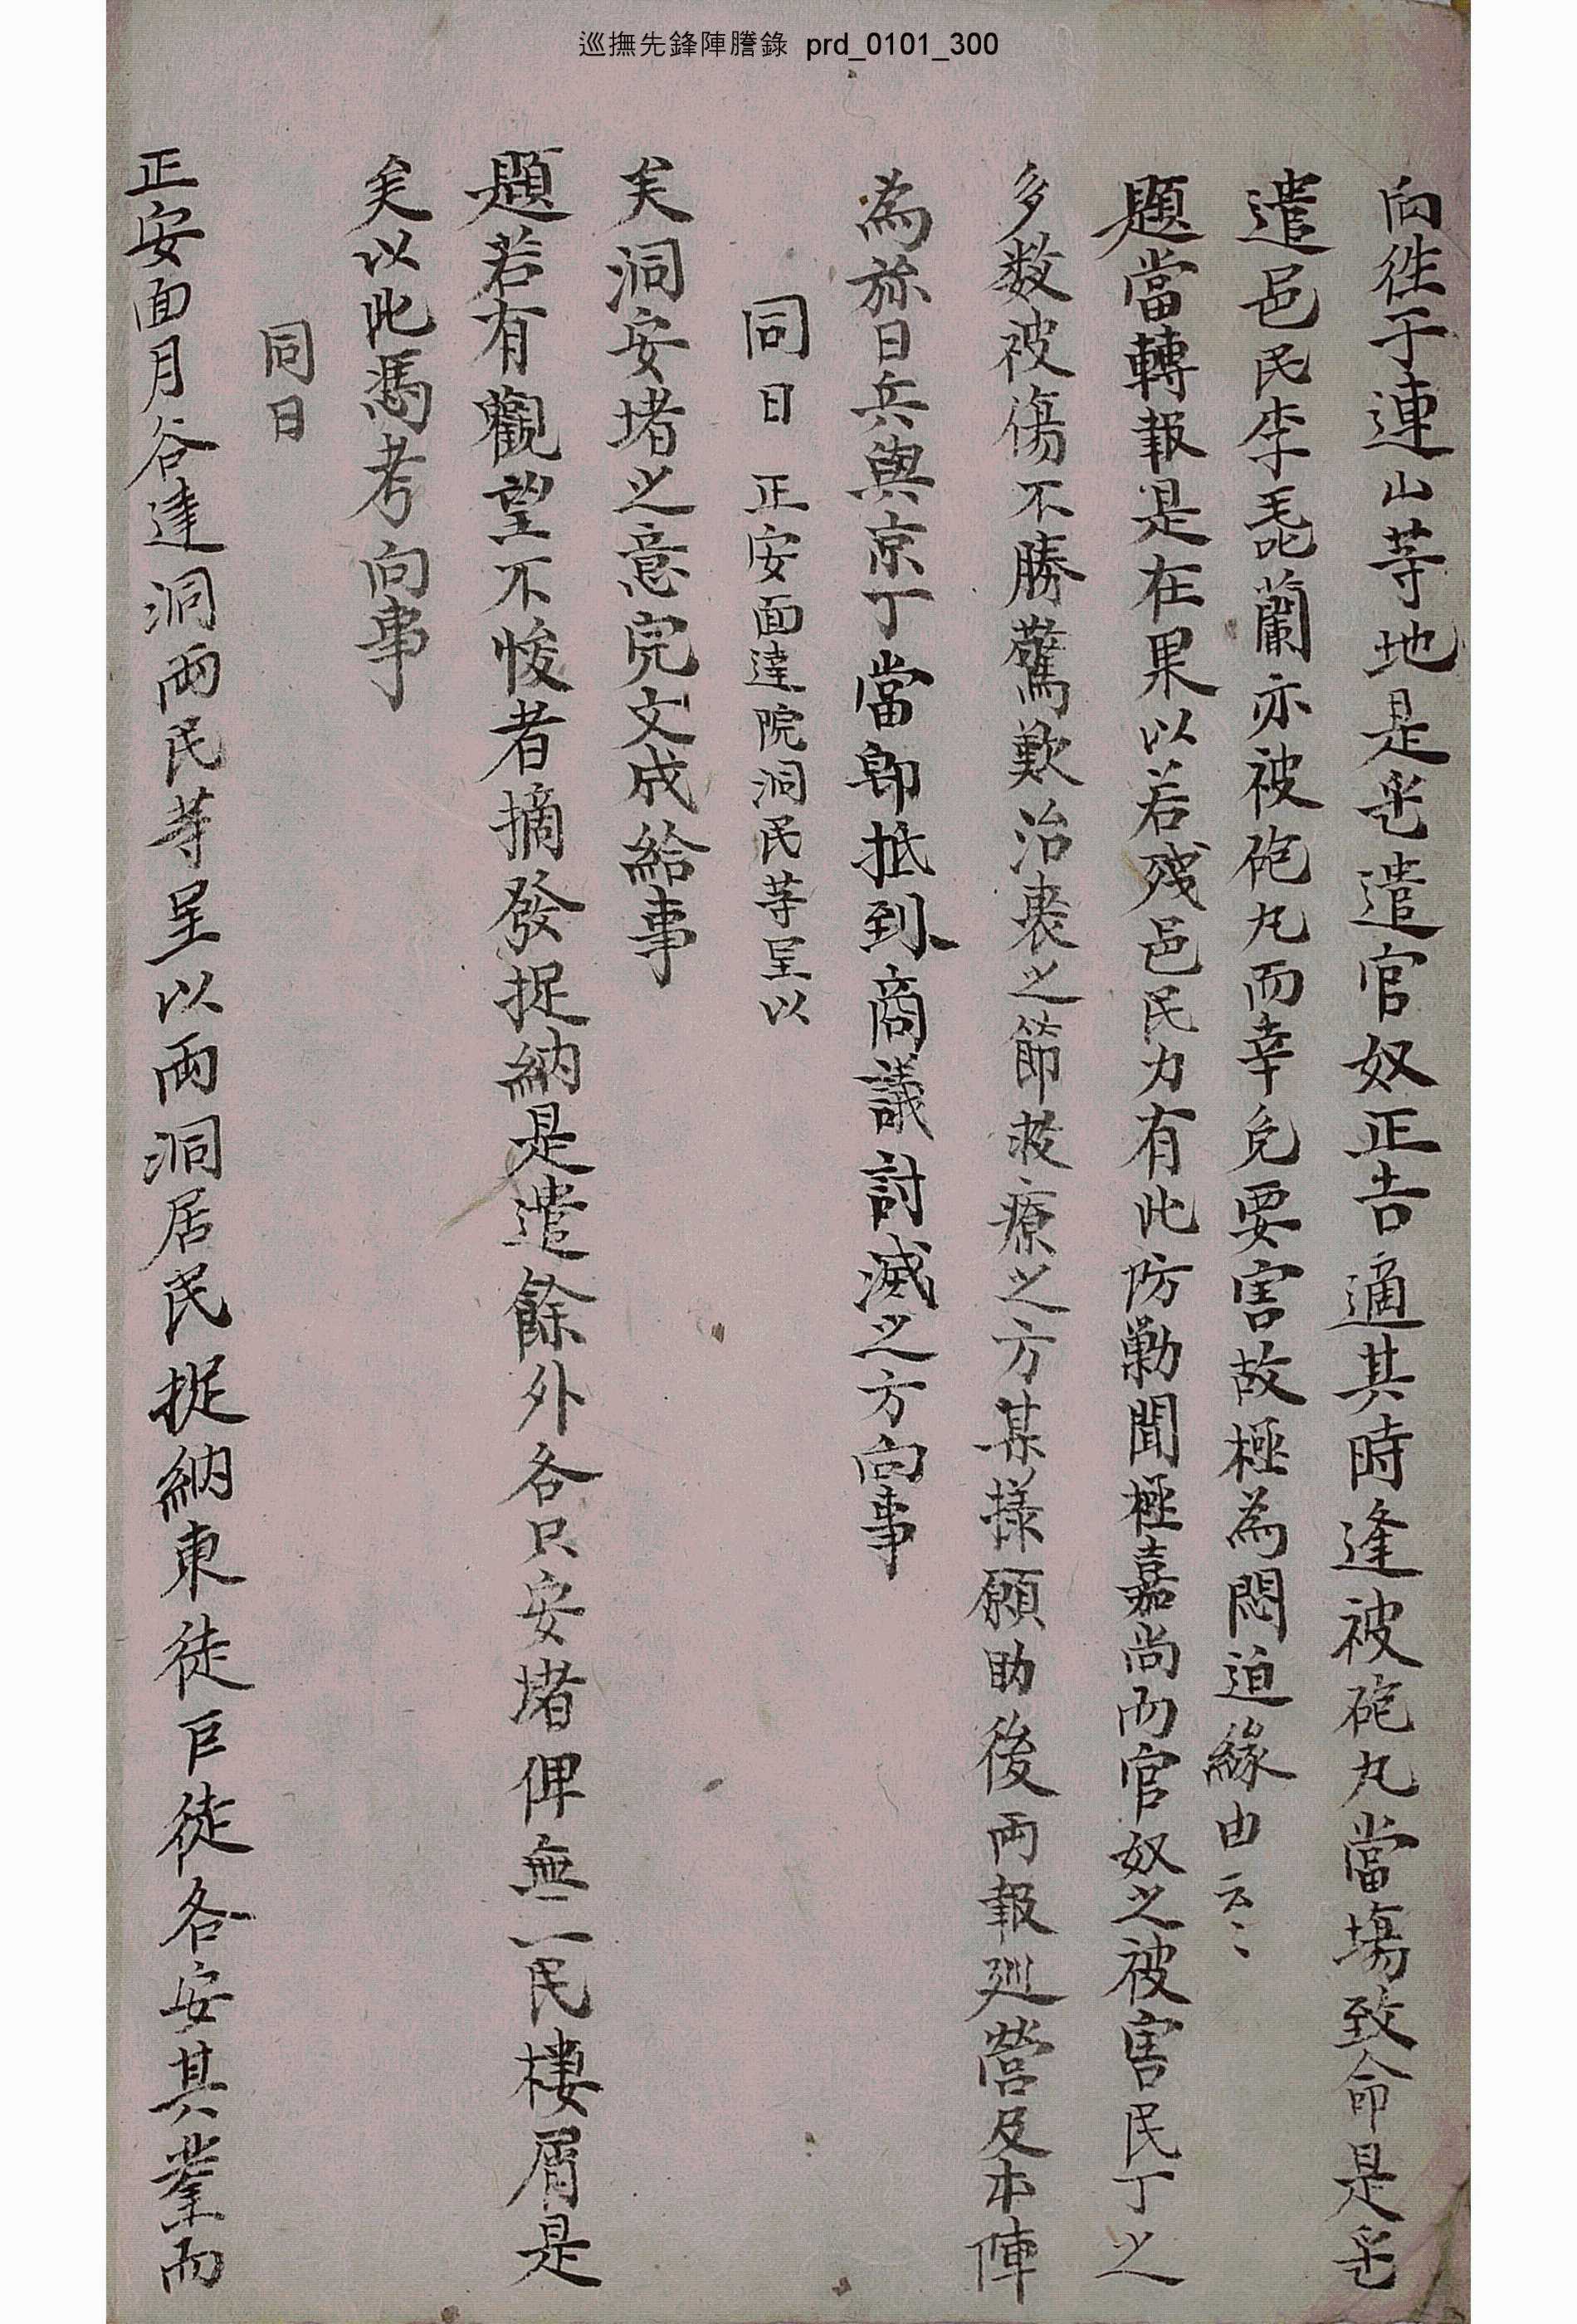 巡撫先鋒陣謄錄 prd_0101_300
向徃于連山等地是乎遣官奴正吉適其時逢被砲丸當場致命是乎
遣邑民李蘭亦被砲丸而幸免要害故極為悶迫緣由云〻
題當轉報是在果以若殘邑民力有此防勦聞極嘉尙而官奴之被害民丁之
多数被傷不勝驚歎治喪之節救療之方某樣顧助後兩報廵營及本陣
為旀日兵與京丁當卽抵到商議討滅之方向事
同日 正安面達院洞民等呈以
矣洞安堵之意完文成給事
題若有觀望不悛者摘發捉納是遣餘外各只安堵俾無一民棲屑是
矣以此馮考向事
同日
正安面月谷達洞兩民等呈以兩洞居民捉納東徒巨徒各安其業而